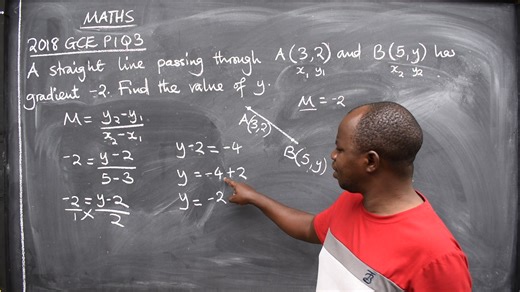 MATHS
2018 GCE P1Q3
A straight line passing through A(3,2) and B(5,y) has
x₁ y₁ x₂ y₂
gradient -2. Find the value of y.
M = -2
A(3,2)
B(5,y)
M = y₂-y₁ / x₂-x₁
-2 = y-2 / 5-3
-2/1 × = y-2/2
y-2 = -4
y = -4+2
y = -2